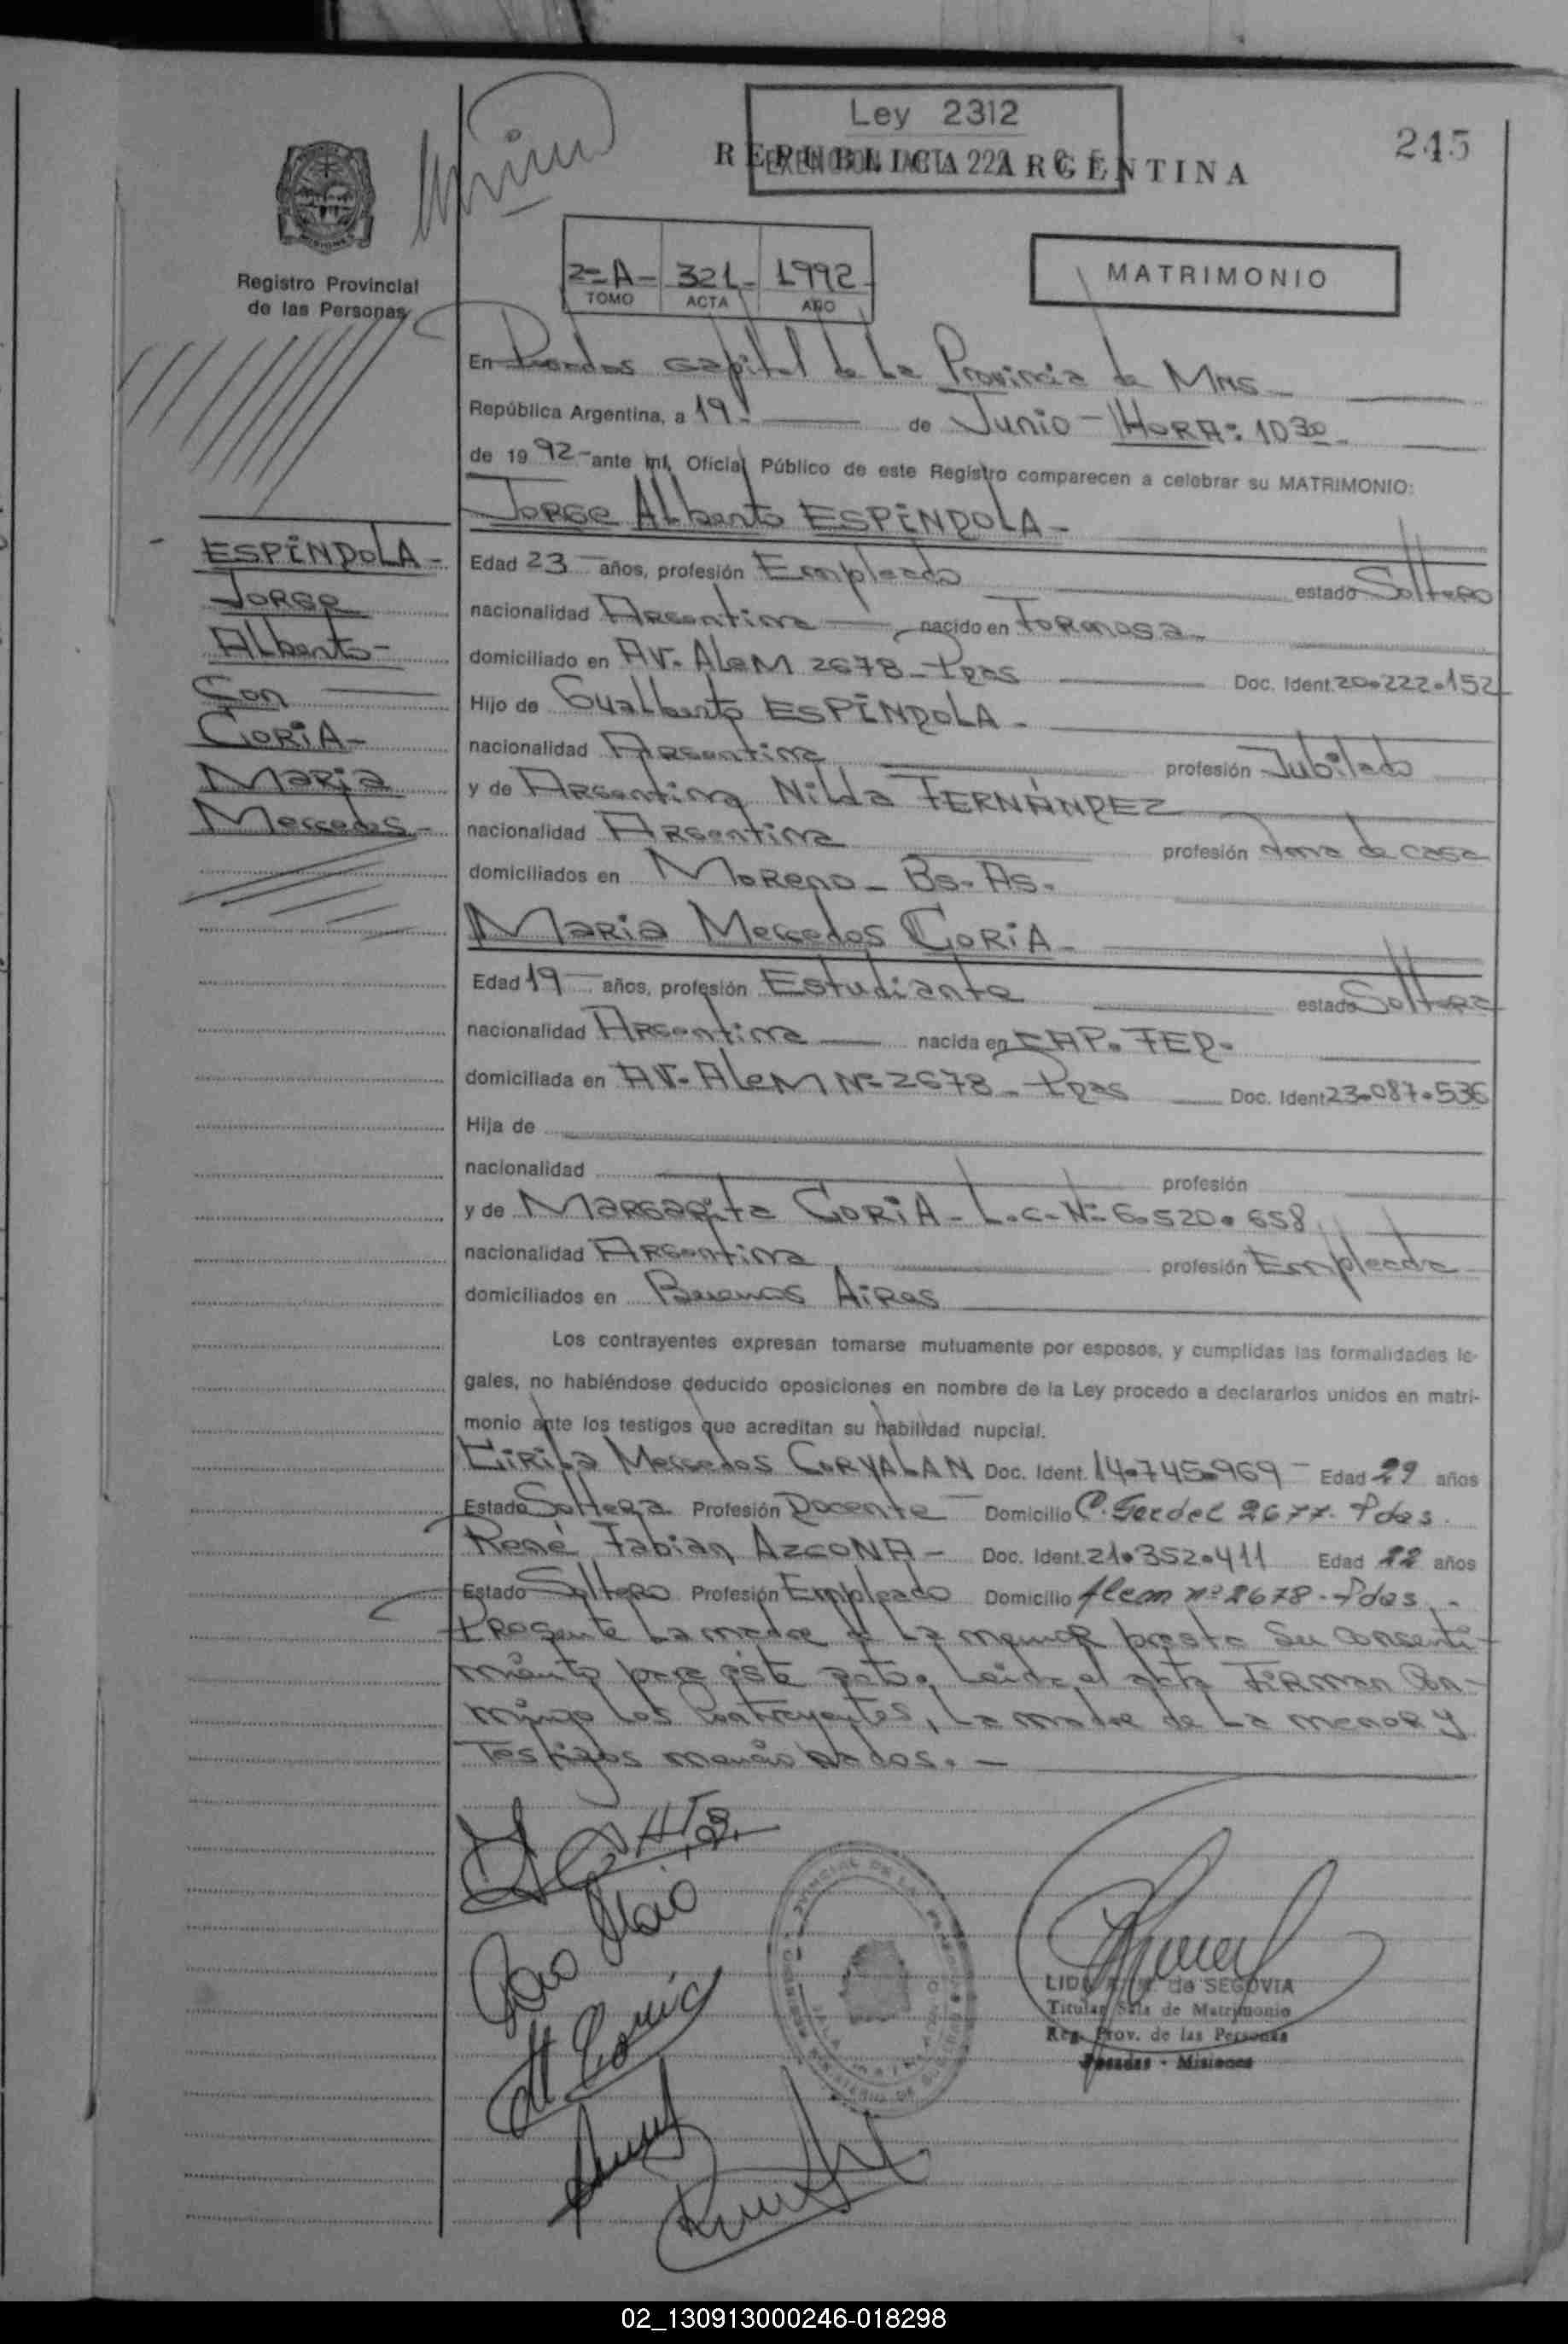 Ley 2312
245
REPUBLICA ARGENTINA
Registro Provincial
de las Personas
2=A- 321- 1992-
TOMO ACTA AÑO
MATRIMONIO
En Posadas capital de la Provincia de Mns-
República Argentina, a 19- de Junio - HORA: 10 30-
de 1992- ante mí, Oficial Público de este Registro comparecen a celebrar su MATRIMONIO:
Jorge Alberto ESPÍNDOLA-
ESPÍNDOLA-
Jorge
Alberto-
Con
CORIA-
Maria
Mercedes-
Edad 23 años, profesión Empleado estado Soltero
nacionalidad Argentina nacido en Formosa-
domiciliado en AV. Alem 2678- Pdas Doc. Ident. 20.222.152
Hijo de Gualberto ESPÍNDOLA-
nacionalidad Argentina profesión Jubilado
y de Argentina Nilda FERNÁNDEZ
nacionalidad Argentina profesión Ama de casa
domiciliados en Moreno- Bs. As.
Maria Mercedes CORIA-
Edad 19 años, profesión Estudiante estado Soltera
nacionalidad Argentina nacida en CAP. FED.
domiciliada en AV. Alem Nº 2678- Pdas Doc. Ident. 23.087.536
Hija de
nacionalidad profesión
y de Margarita CORIA- L.C. Nº 6.520.658
nacionalidad Argentina profesión Empleada
domiciliados en Buenos Aires
Los contrayentes expresan tomarse mutuamente por esposos, y cumplidas las formalidades le-
gales, no habiéndose deducido oposiciones en nombre de la Ley procedo a declararlos unidos en matri-
monio ante los testigos que acreditan su habilidad nupcial.
Mercedes CORVALAN Doc. Ident. 14.745.969 Edad 29 años
Estado Soltera Profesión Docente Domicilio C. Gardel 2677- Pdas.
René Fabian AZCONA- Doc. Ident. 21.352.411 Edad 22 años
Estado Soltero Profesión Empleado Domicilio Alem nº 2678- Pdas.-
Presente la madre de la menor presta su consenti-
miento para éste acto. Leída el acta Firman Con-
migo los Contrayentes, la madre de la menor y
Testigos mencionados.-
de SEGOVIA
Titular Sala de Matrimonio
Reg. Prov. de las Personas
Posadas - Misiones
02_130913000246-018298